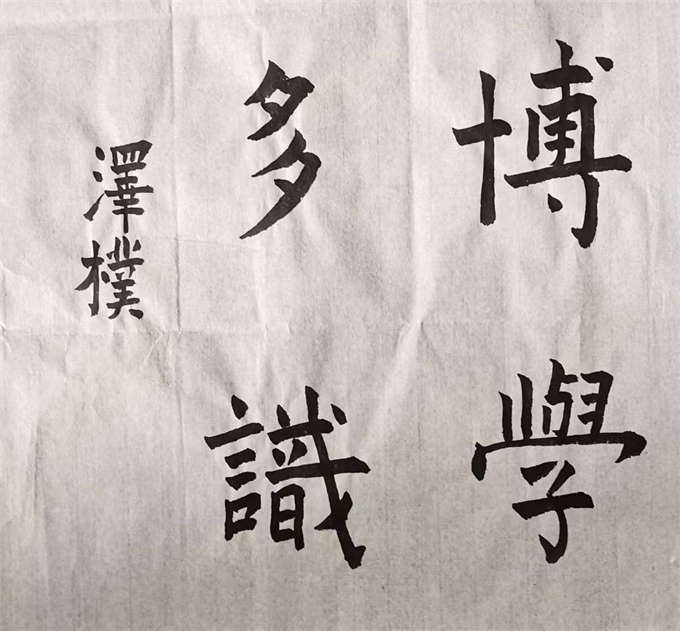 博學
多識
澤樸